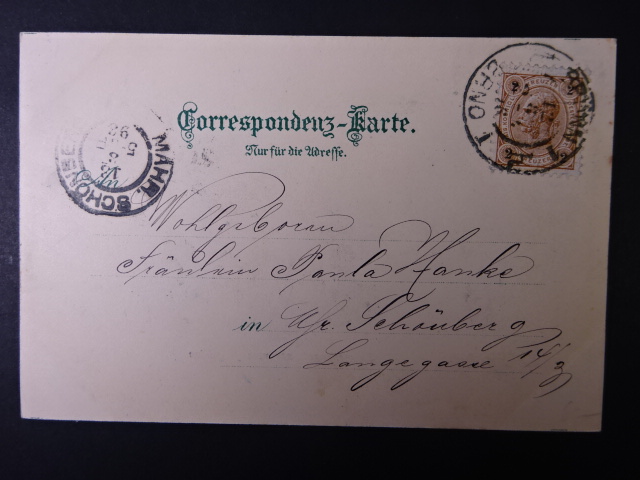 Correspondenz-Karte.
Nur für die Adresse.
MÄHR. SCHÖNBE
BRÜNN
BRNO
2
2
Wohlgeboren
Fräulein Paula Hanke
in Mhr. Schönberg
Langegasse 14/3